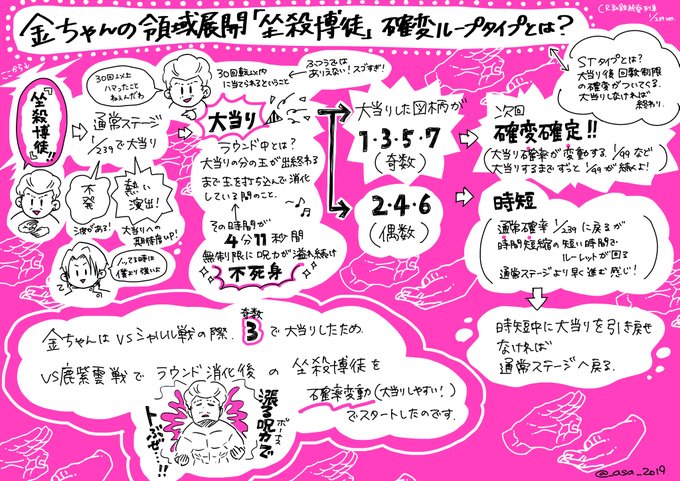 金ちゃんの領域展開「坐殺博徒」確変ループタイプとは?
CR私鉄純愛列車
1/239 ver.
ここから↓
『坐殺博徒』!!
30回以上
ハマったこと
ねぇんだわ
30回転以内
に当てられるということ
ふつうでは
ありえない!スゴすぎ!
STタイプとは?
大当り後 回数制限
の確変がついてくる.
大当りしなければ
終わり.
通常ステージ
1/239で大当り
不発
次がある!
熱い
演出!
大当りへの
期待度UP!
ノッてる時は
僕より強いよ
大当り
ラウンド中とは?
大当りの分の玉が出終わる
まで玉を打ち込んで消化
している間のこと.
その時間が
4分11秒間
無制限に呪力が溢れ続け
不死身
大当りした図柄が
1・3・5・7
(奇数)
2・4・6
(偶数)
次回
確変確定!!
(大当り確率が変動する. 1/99など
大当りするまでずっと1/99が続くよ!)
時短
通常確率1/239に戻るが
時間短縮の短い時間で
ルーレットが回る
通常ステージより早く進む感じ!
時短中に大当りを引き戻せ
なければ
通常ステージへ戻る.
金ちゃんはvsシャルル戦の際、
奇数
3で大当りしたため.
vs鹿紫雲戦でラウンド消化後の坐殺博徒を
確率変動(大当りしやすい!)
でスタートしたのです.
漲る呪力で
ボーナス
トぶぜ…!!
@_asa_2019